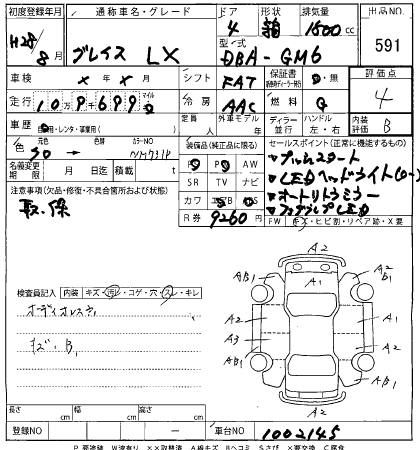 初度登録年月 通称車名・グレード ドア 形状 排気量 出品NO.
H28/8月 グレイス LX 4 箱 1500cc 591
型式 DBA-GM6
車検 × 年 × 月 シフト FAT 保証書 有・無 評価点 4
走行 109699 マイル 冷房 AAC 燃料 G 内装 B
車歴 自家用・レンタ・事業用( ) 定員 人 外車モデル 年 ディーラー 並行 ハンドル 左・右
色 元色 色替 カラーNO NH731P
名義変更期限 月 日 積載 t
装備品(純正品に限る)
PS PW AW
SR TV ナビ
カワ エアB ABS
R券 9260円
セールスポイント(正常に機能するもの)
・プッシュスタート
・LEDヘッドライト(ロー)
・オートリトミラー
・フォグランプLED
FW キズ・ヒビ・リペア跡・X要
注意事項(欠品・修復・不具合箇所および状態)
取、保
検査員記入 内装 キズ・汚レ・コゲ・穴・スレ・キレ
オーディオレス
キズ・B1
A2
A1
AB1 A2 B1
A2 A2
A3 A1
AB1 AB1
A2
長さ cm 幅 cm 高さ cm
登録NO ー 車台NO 1002145
P 要塗装 W波有り ××取替済 A線キズ Bヘコミ Sさび ×要交換 C腐食